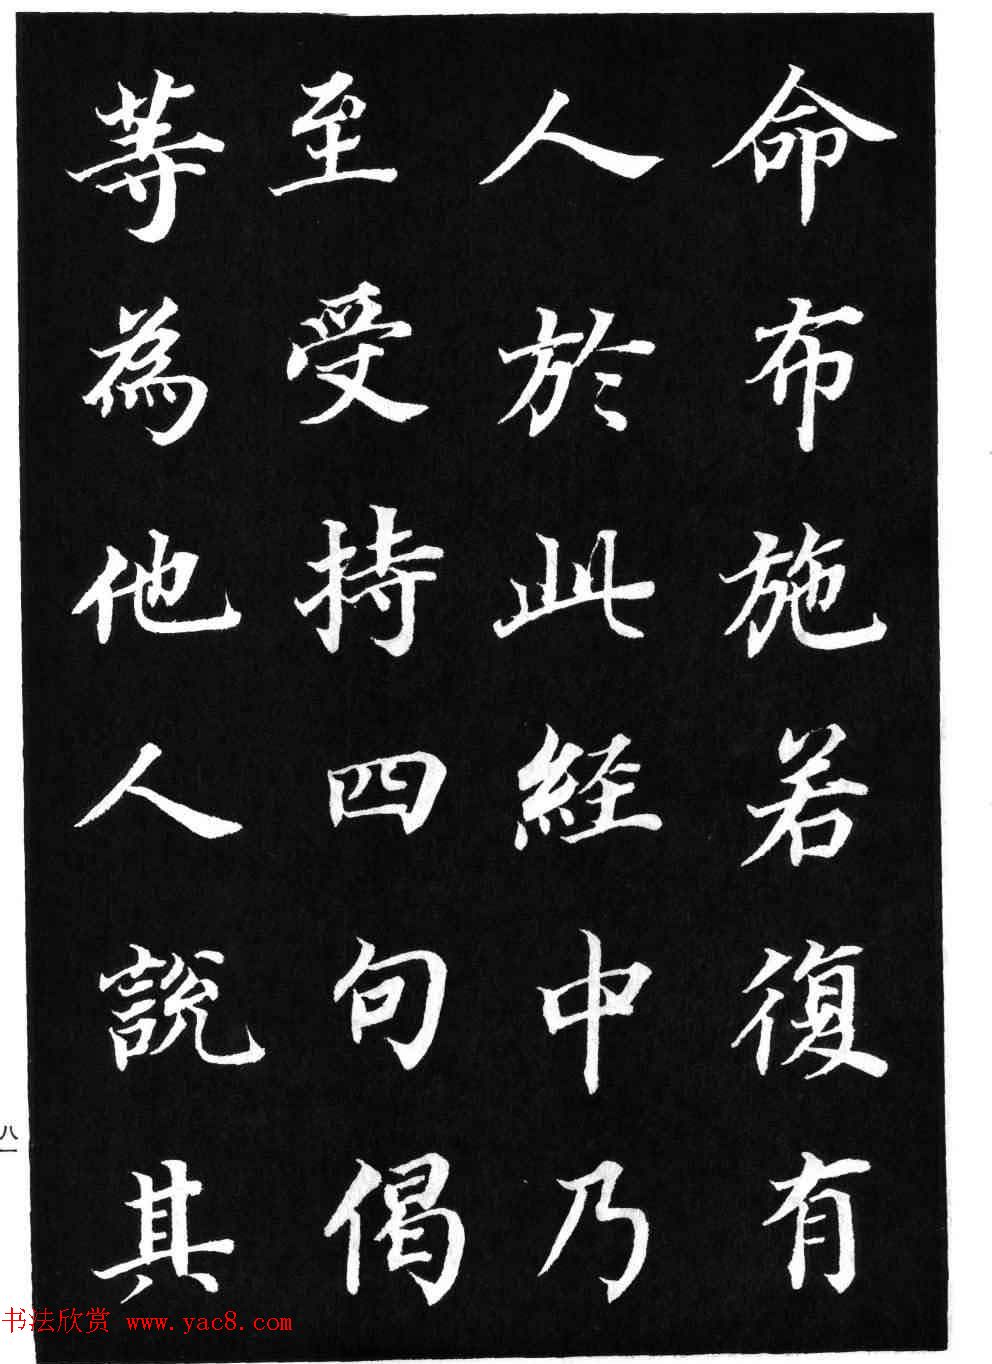 命布施若復有
人於此經中乃
至受持四句偈
等為他人說其
八一
书法欣赏 www.yac8.com